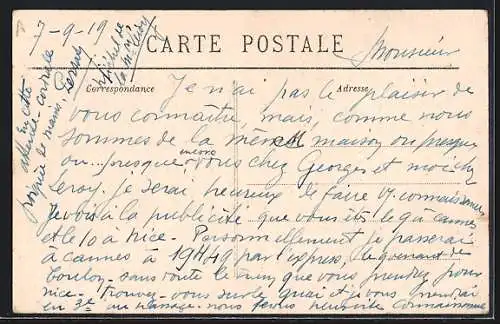 7-9-19
CARTE POSTALE
Monsieur
Correspondance
Adresse
Je n'ai pas le plaisir de
vous connaître, mais, comme nous
sommes de la même maison ou presque
ou... presque vous chez Georges et moi chez
Leroy. je serai heureux de faire v/ connaissance
Je vois à la publicité que vous êtes le 9 à Cannes
et le 10 à Nice. Personnellement je passerai
à Cannes à 19H49 par l'express, le venant de
Toulon, sans doute le que vous prendrez pour
Nice. Trouvez-vous sur le quai et je vous
en 3e nous ferons connaissance
En cette
attente, cordiale
poignée de mains. Leroy